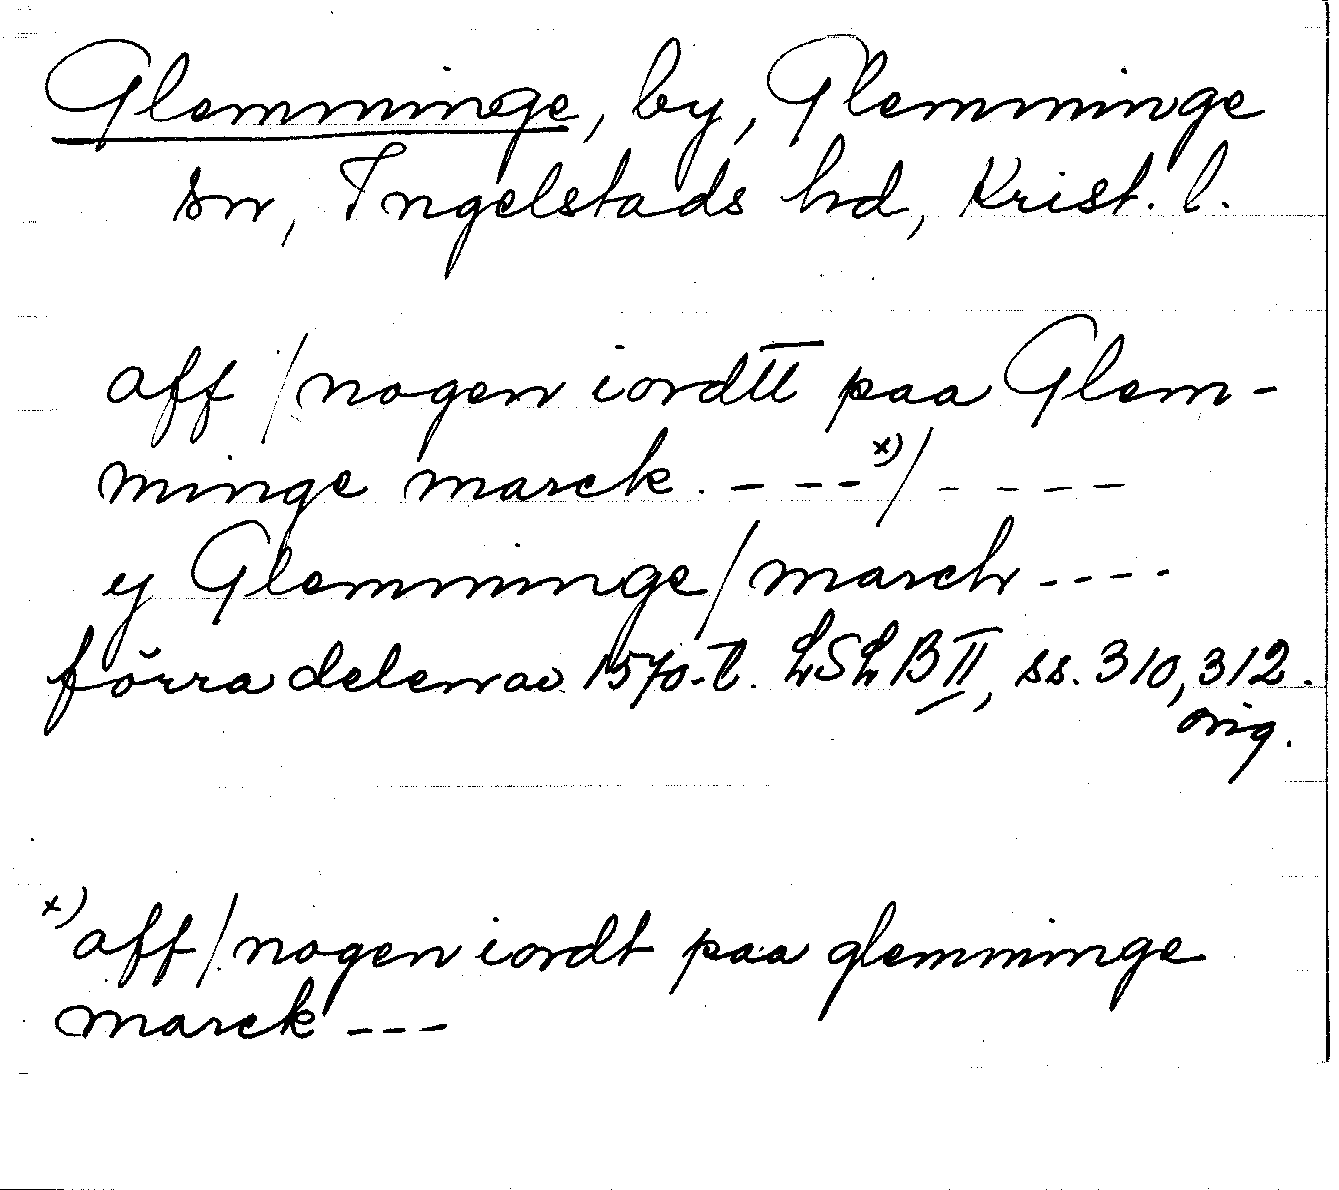 Glemminge, by, Glemminge
sn, Ingelstads hd, Krist. l.
aff / nogen iordtt paa Glem-
minge marck. - - - x) / - - - - -
y Glemminge / march - - - -
förra delen av 1570-t. LSLB II, ss. 310, 312.
orig.
x) aff / nogen iordt paa glemminge
marck - - -